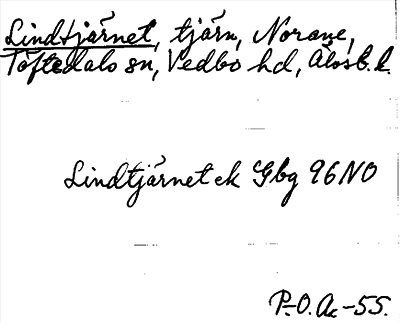 Lindtjärnet, tjärn, Norane,
Töftedals sn, Vedbo hd, Älvsb. l.
Lindtjärnet ek Gbg 96 NO
P.-O. Ax -55.